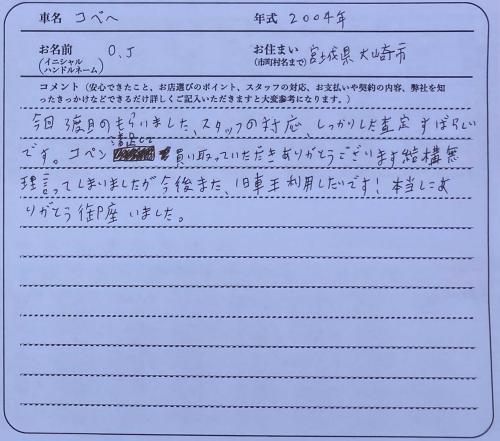 車名 コペへ 年式 2004年
お名前 O.J お住まい 宮城県大崎市
(イニシャル (市町村名まで)
ハンドルネーム)
コメント (安心できたこと、お店選びのポイント、スタッフの対応、お支払いや契約の内容、弊社を知
ったきっかけなどできるだけ詳しくご記入いただきますと大変参考になります。)
今回3度目のもらいました、スタッフの対応、しっかりした査定すばらしい
です。コペン 買い取っていただきありがとうございます結構無
理言ってしまいましたが今後また、旧車王利用したいです!本当にあ
りがとう御座いました。